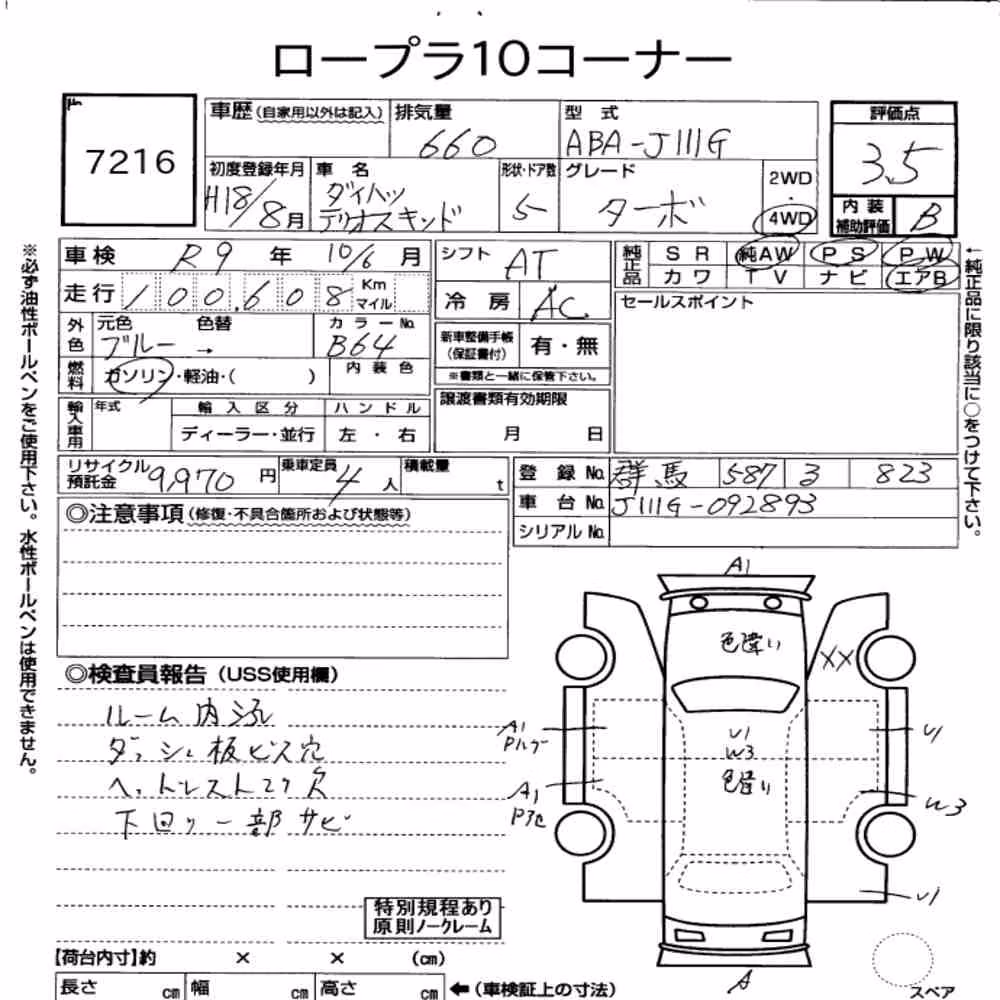 ロープラ10コーナー
7216
車歴(自家用以外は記入)
排気量 660
型式 ABA-J111G
評価点 3.5
初度登録年月 H18/8月
車名 ダイハツ テリオスキッド
形状・ドア数 5
グレード ターボ
2WD
4WD
内装補助評価 B
車検 R9年 10/6月
シフト AT
純正品 SR 純AW PS PW
カワ TV ナビ エアB
走行 100,608 Km マイル
冷房 AC
セールスポイント
外色 元色 ブルー → 色替
カラーNo. B64
新車整備手帳(保証書付) 有・無
※書類と一緒に保管下さい。
燃料 ガソリン・軽油・( )
内装色
輸入車用 年式 輸入区分 ハンドル
ディーラー・並行 左・右
譲渡書類有効期限
月 日
リサイクル預託金 9,970円
乗車定員 4人
積載量 t
登録No. 群馬 587 ろ 823
車台No. J111G-092893
シリアルNo.
◎注意事項(修復・不具合箇所および状態等)
◎検査員報告(USS使用欄)
ルーム内汚
ダッシュ板ビス穴
ヘッドレスト2ケ欠
下回り一部サビ
特別規程あり
原則ノークレーム
【荷台内寸】約 × × (cm)
長さ cm 幅 cm 高さ cm ←(車検証上の寸法)
※必ず油性ボールペンをご使用下さい。水性ボールペンは使用できません。
←純正品に限り該当に○をつけて下さい。
A1
色違い
XX
A1
U1
W3
色違い
U1
A1
W3
U1
A
スペア